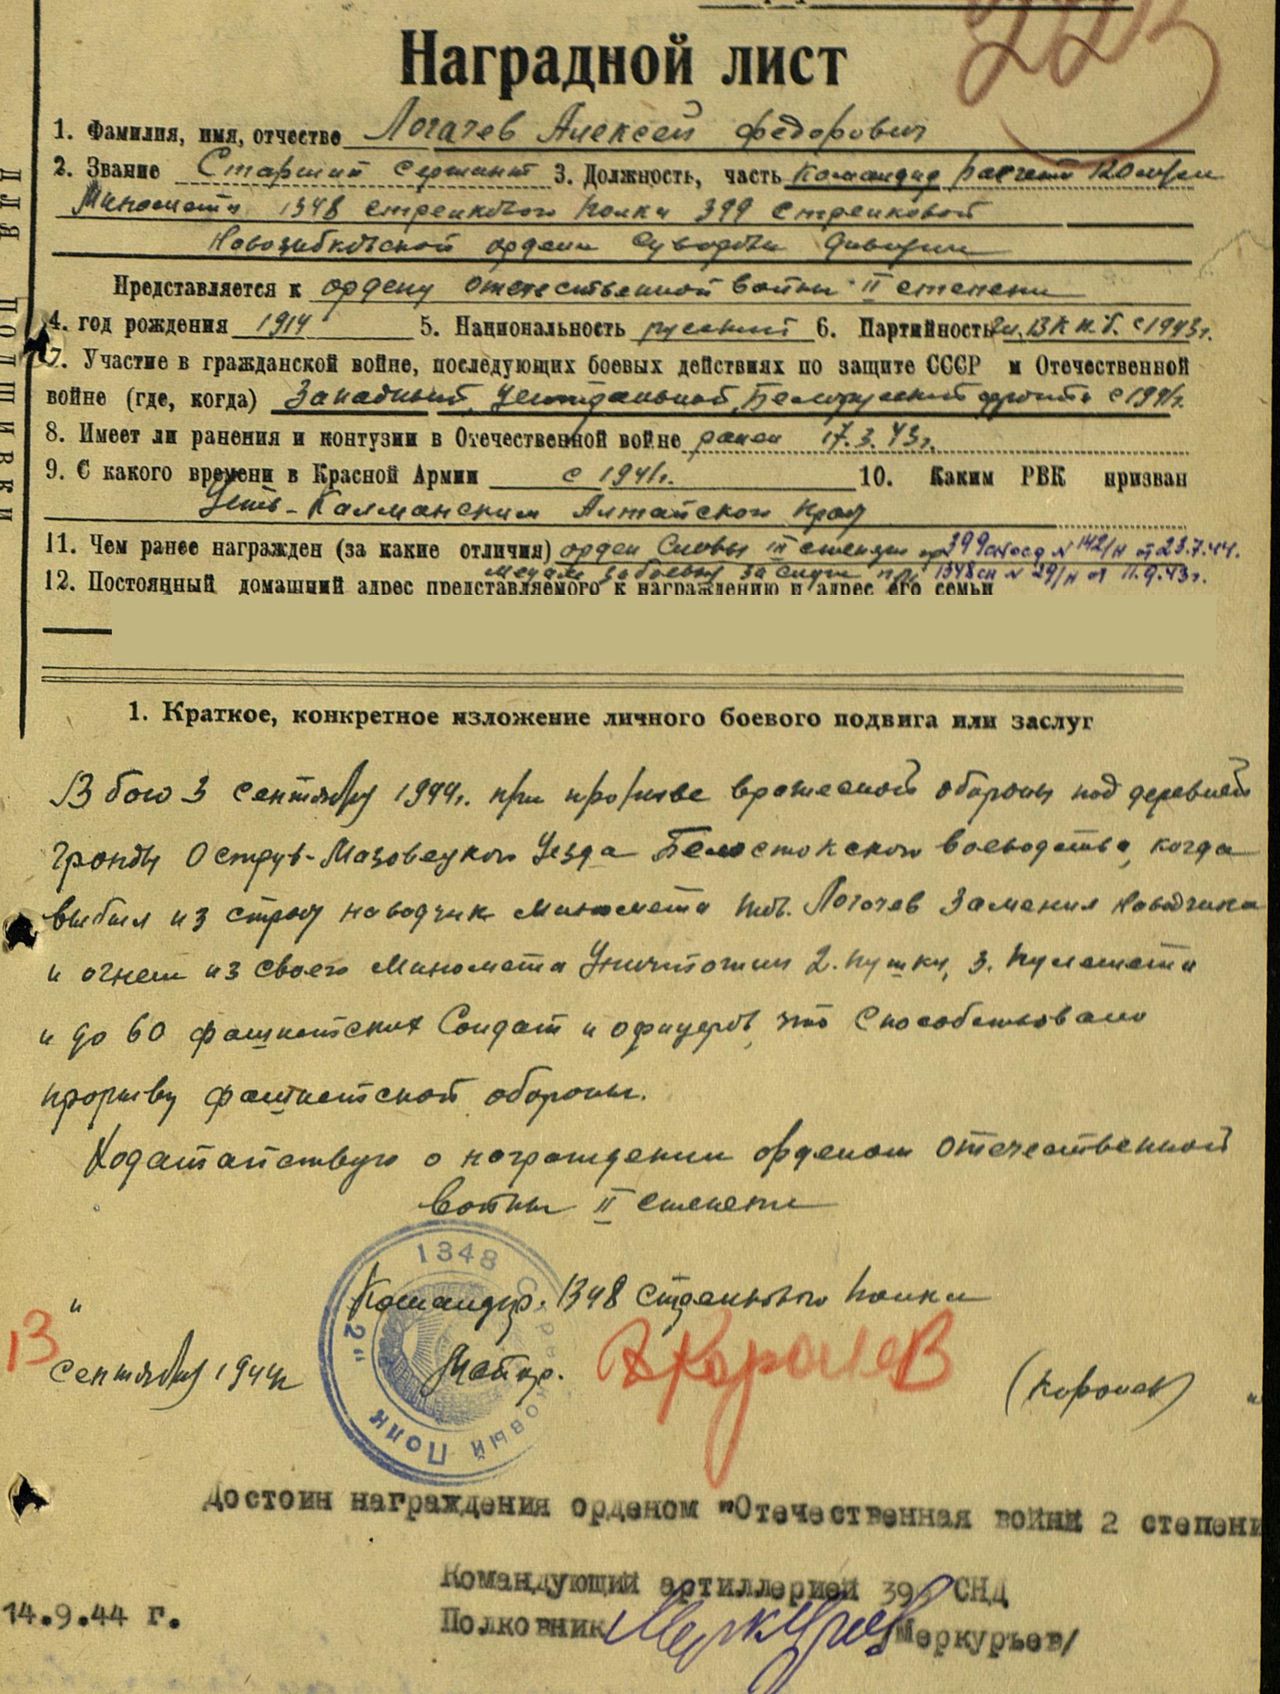 Наградной лист
1. Фамилия, имя, отчество Логачев Алексей Федорович
2. Звание Старший сержант 3. Должность, часть Командир расчета 120 м/м
Миномета 1348 стрелкового полка 399 стрелковой
Новозыбковской ордена Суворова дивизии
Представляется к ордену Отечественной войны II степени
4. год рождения 1914 5. Национальность русский 6. Партийность чл. ВКП.б. с 1943г.
7. Участие в гражданской войне, последующих боевых действиях по защите СССР и Отечественной
войне (где, когда) Западный, Центральный, Белорусский фронта с 1941г.
8. Имеет ли ранения и контузии в Отечественной войне ранен 17.3.43г.
9. С какого времени в Красной Армии с 1941г. 10. Каким РВК призван
Усть-Калманским Алтайского края
11. Чем ранее награжден (за какие отличия) орден Славы III степени пр 399 сд N 142/н от 23.7.44.
медаль за боевые заслуги пр. 1348 сп N 29/н от 11.9.43г.
12. Постоянный домашний адрес представляемого к награждению и адрес его семьи
1. Краткое, конкретное изложение личного боевого подвига или заслуг
В бою 3 сентября 1944г. при прорыве вражеской обороны под деревней
Гронды Острув-Мазовецкого Уезда Белостокского воеводства, когда
выбыл из строя наводчик миномета тов. Логачев заменил наводчика
и огнем из своего миномета уничтожил 2. пушки, 3. пулемета
и до 60 фашистских солдат и офицеров, что способствовало
прорыву фашистской обороны.
Ходатайствую о награждении орденом Отечественной
войны II степени
1348 Стрелковый Полк "2"
Командир. 1348 стрелкового полка
"
13
сентября 1944г
Майор. Королев
(Королев)
Достоин награждения орденом "Отечественная войны 2 степени
Командующий артиллерией 399 СНД
14.9.44 г.
Полковник Меркурьев /Меркурьев/
Для подшивки